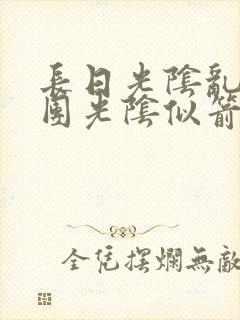 長日光陰亂
團光陰似箭
全凭摆爛無敵